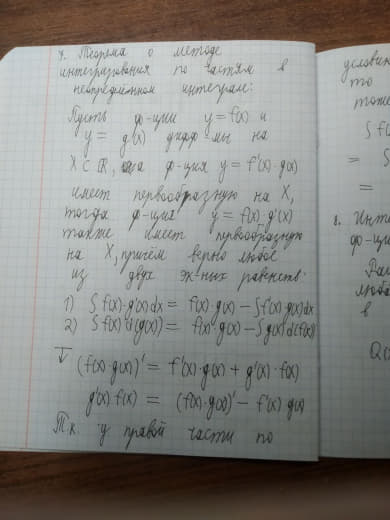 7. Теорема о методе
интегрирования по частям в
неопределённом интеграле:
Пусть ф-ции y = f(x) и
y = g(x) дифф-мы на
X ⊂ ℝ, а ф-ция y = f'(x)·g(x)
имеет первообразную на X,
тогда ф-ция y = f(x)·g'(x)
также имеет первообразную
на X, причём верно любое
из двух эк-ных равенств:
1) ∫ f(x)·g'(x)dx = f(x)·g(x) - ∫f'(x)·g(x)dx
2) ∫ f(x) d(g(x)) = f(x)·g(x) - ∫g(x)d(f(x))
(f(x)·g(x))' = f'(x)·g(x) + g'(x)·f(x)
g'(x)·f(x) = (f(x)·g(x))' - f'(x)·g(x)
Т.к. у правой части по
услови
то
тоже
∫f(
= ∫
=
8. Инте
ф-ци
Ра
люба
в
Q(x